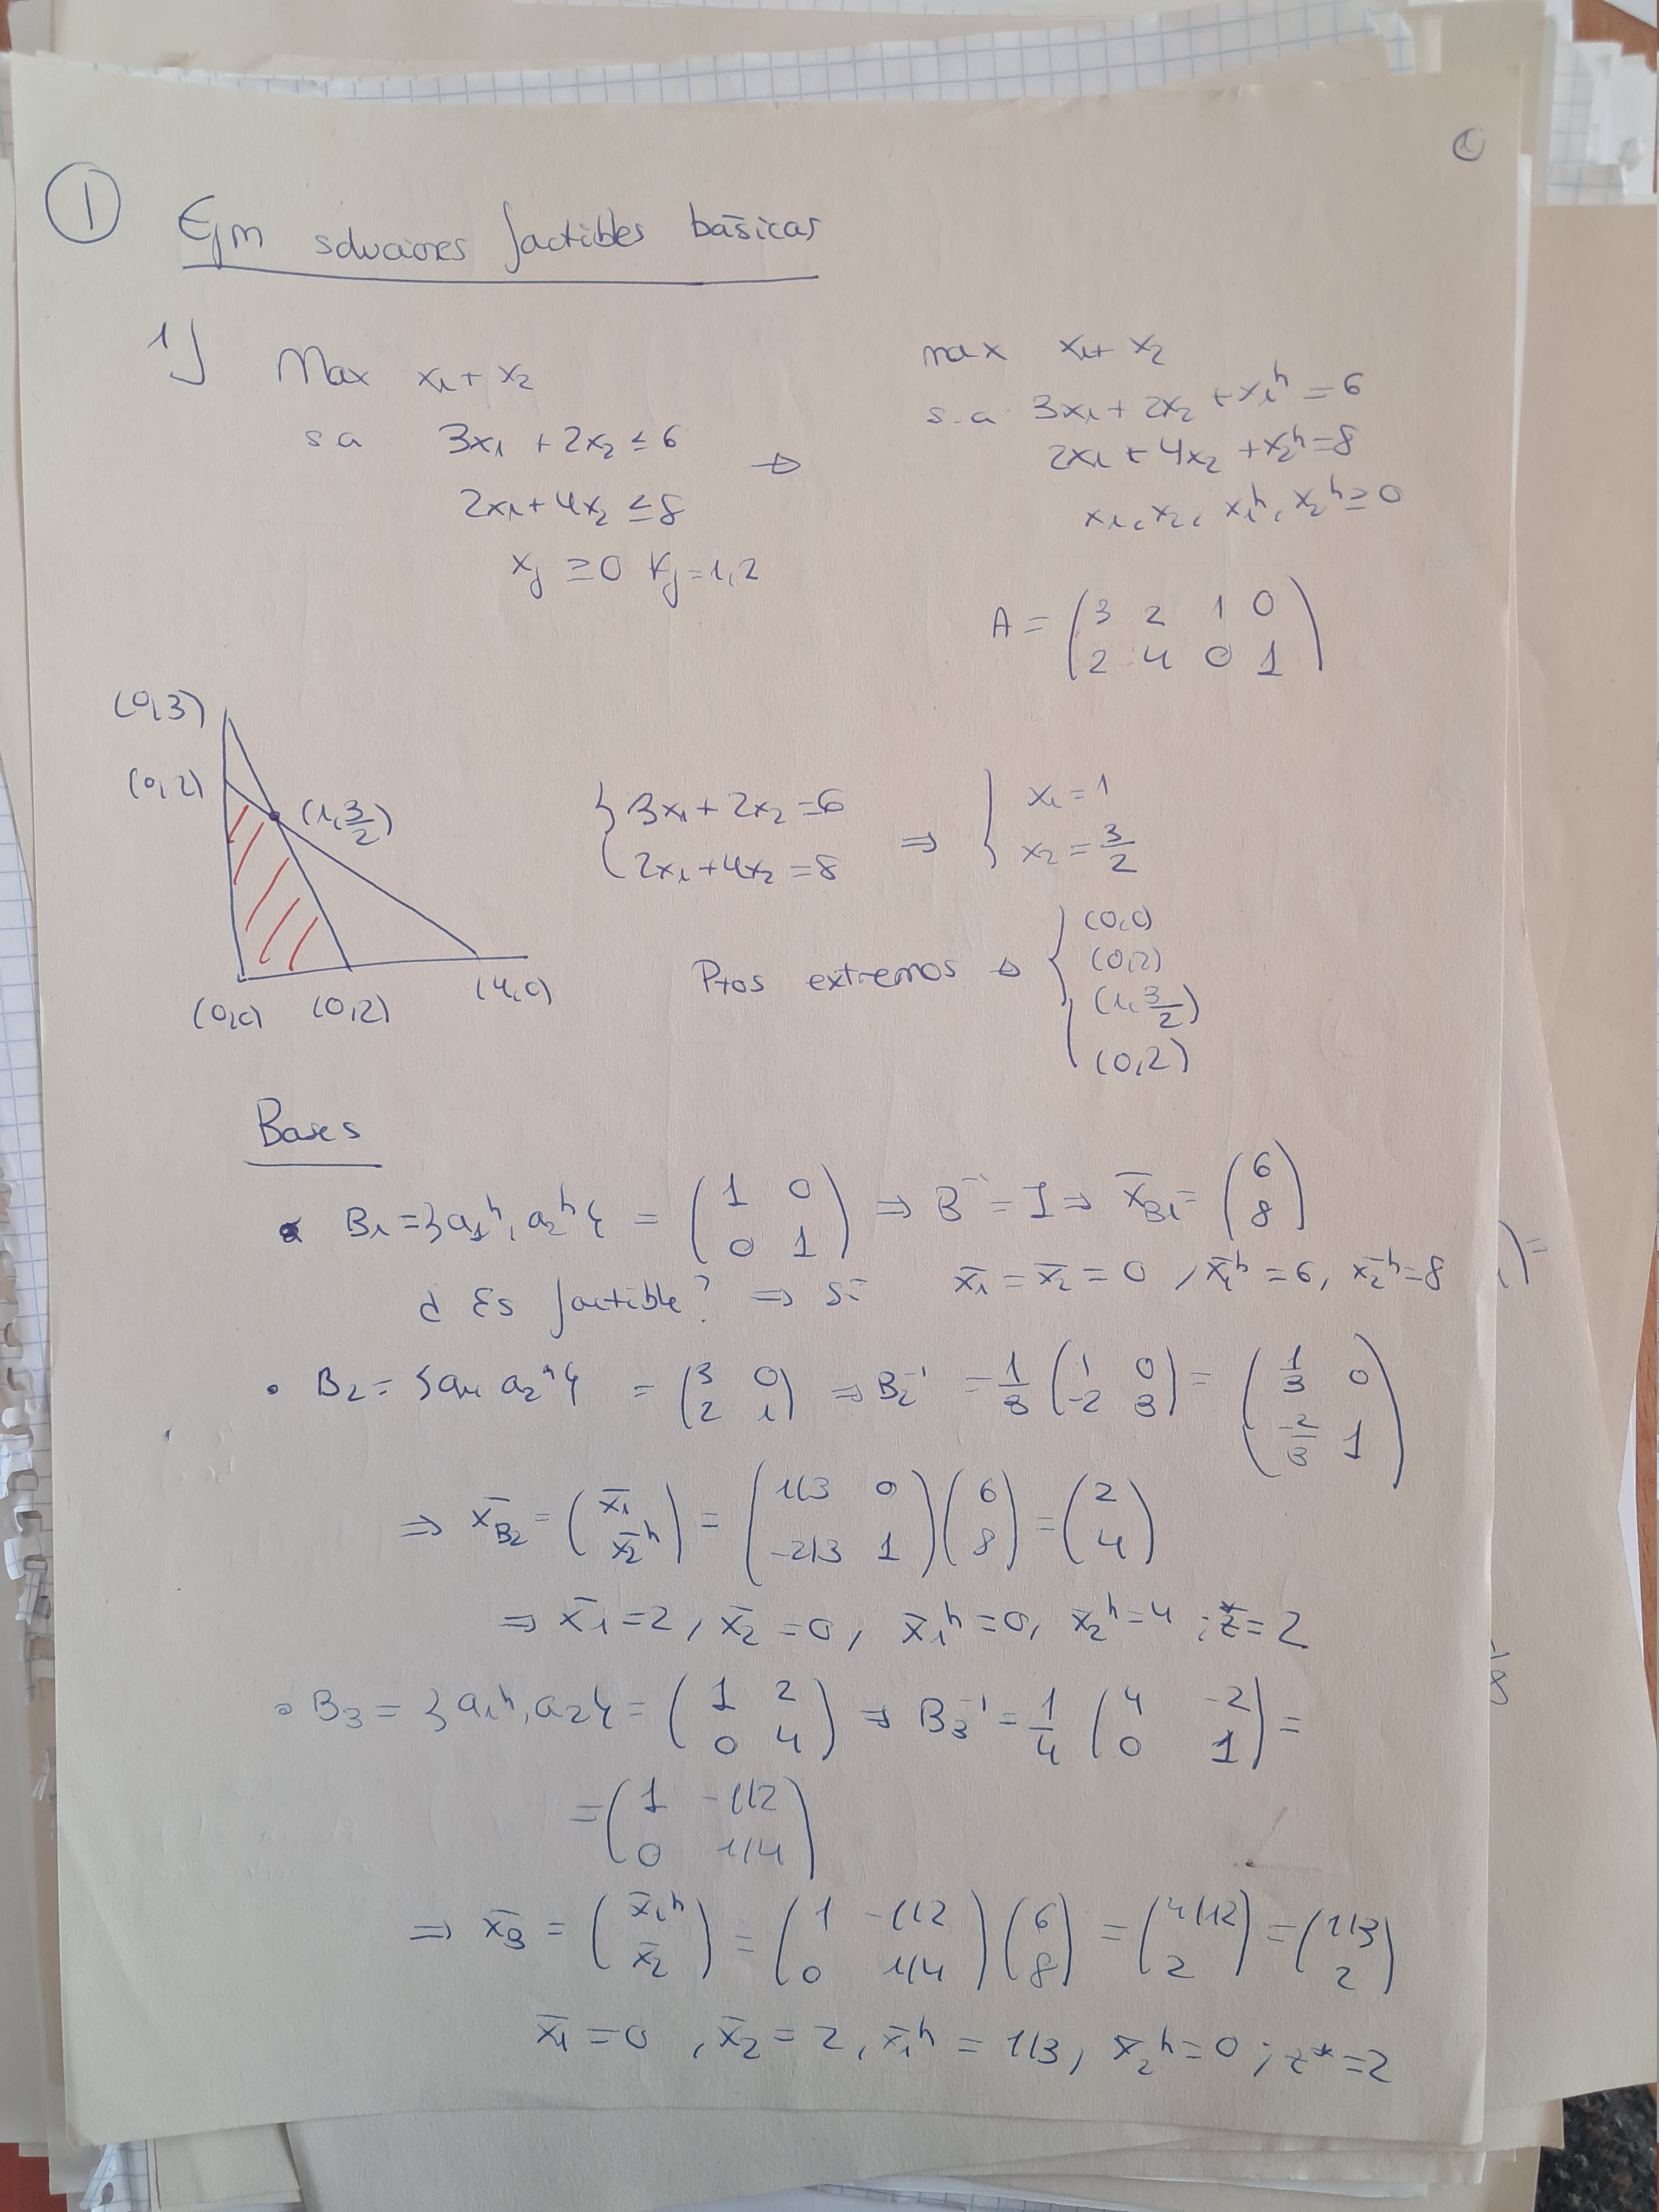 ①
1
Ejm soluciones factibles básicas
1) Max x₁ + x₂
s a 3x₁ + 2x₂ ≤ 6 ⇒
2x₁ + 4x₂ ≤ 8
xⱼ ≥ 0 ∀j = 1,2
max x₁ + x₂
s.a 3x₁ + 2x₂ + x₁ʰ = 6
2x₁ + 4x₂ + x₂ʰ = 8
x₁, x₂, x₁ʰ, x₂ʰ ≥ 0
A = (3 2 1 0
2 4 0 1)
(0,3)
(0,2)
(1, 3/2)
(0,0) (0,2) (4,0)
{ 3x₁ + 2x₂ = 6
2x₁ + 4x₂ = 8 ⇒ { x₁ = 1
x₂ = 3/2
Ptos extremos ⇒ { (0,0)
(0,2)
(1, 3/2)
(0,2)
Bases
• B₁ = {a₁ʰ, a₂ʰ} = (1 0
0 1) ⇒ B⁻¹ = I ⇒ x̄_B₁ = (6
8)
¿Es factible? ⇒ sí x̄₁ = x̄₂ = 0, x̄₁ʰ = 6, x̄₂ʰ = 8
• B₂ = {a₁ a₂ʰ} = (3 0
2 1) ⇒ B₂⁻¹ = 1/3 (1 0
-2 3) = (1/3 0
-2/3 1)
⇒ x̄_B₂ = (x̄₁
x̄₂ʰ) = (1/3 0
-2/3 1) (6
8) = (2
4)
⇒ x̄₁ = 2, x̄₂ = 0, x̄₁ʰ = 0, x̄₂ʰ = 4; z* = 2
• B₃ = {a₁ʰ, a₂} = (1 2
0 4) ⇒ B₃⁻¹ = 1/4 (4 -2
0 1) =
= (1 -1/2
0 1/4)
⇒ x̄_B = (x̄₁ʰ
x̄₂) = (1 -1/2
0 1/4) (6
8) = (4/12
2) = (1/3
2)
x̄₁ = 0, x̄₂ = 2, x̄₁ʰ = 1/3, x̄₂ʰ = 0; z* = 2